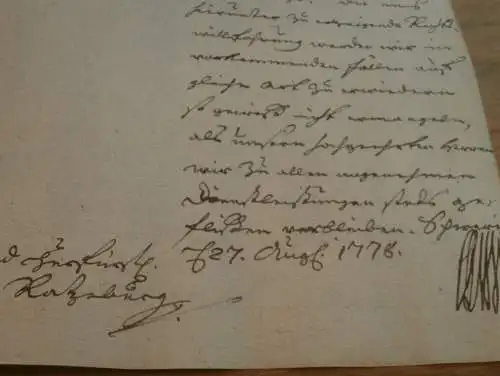 hierunter zu erzeigende Rechts-
willfahrung werden wir in
vorkommenden Fällen auf
gleiche Art zu erwiedern
so gewiß nicht ermangeln,
als unsern hochgeehrten Herren
wir zu allen angenehmen
Dienstleistungen stets ge-
flißen verbleiben.
27. Aug. 1778.
Fürstl.
Ratzeburg